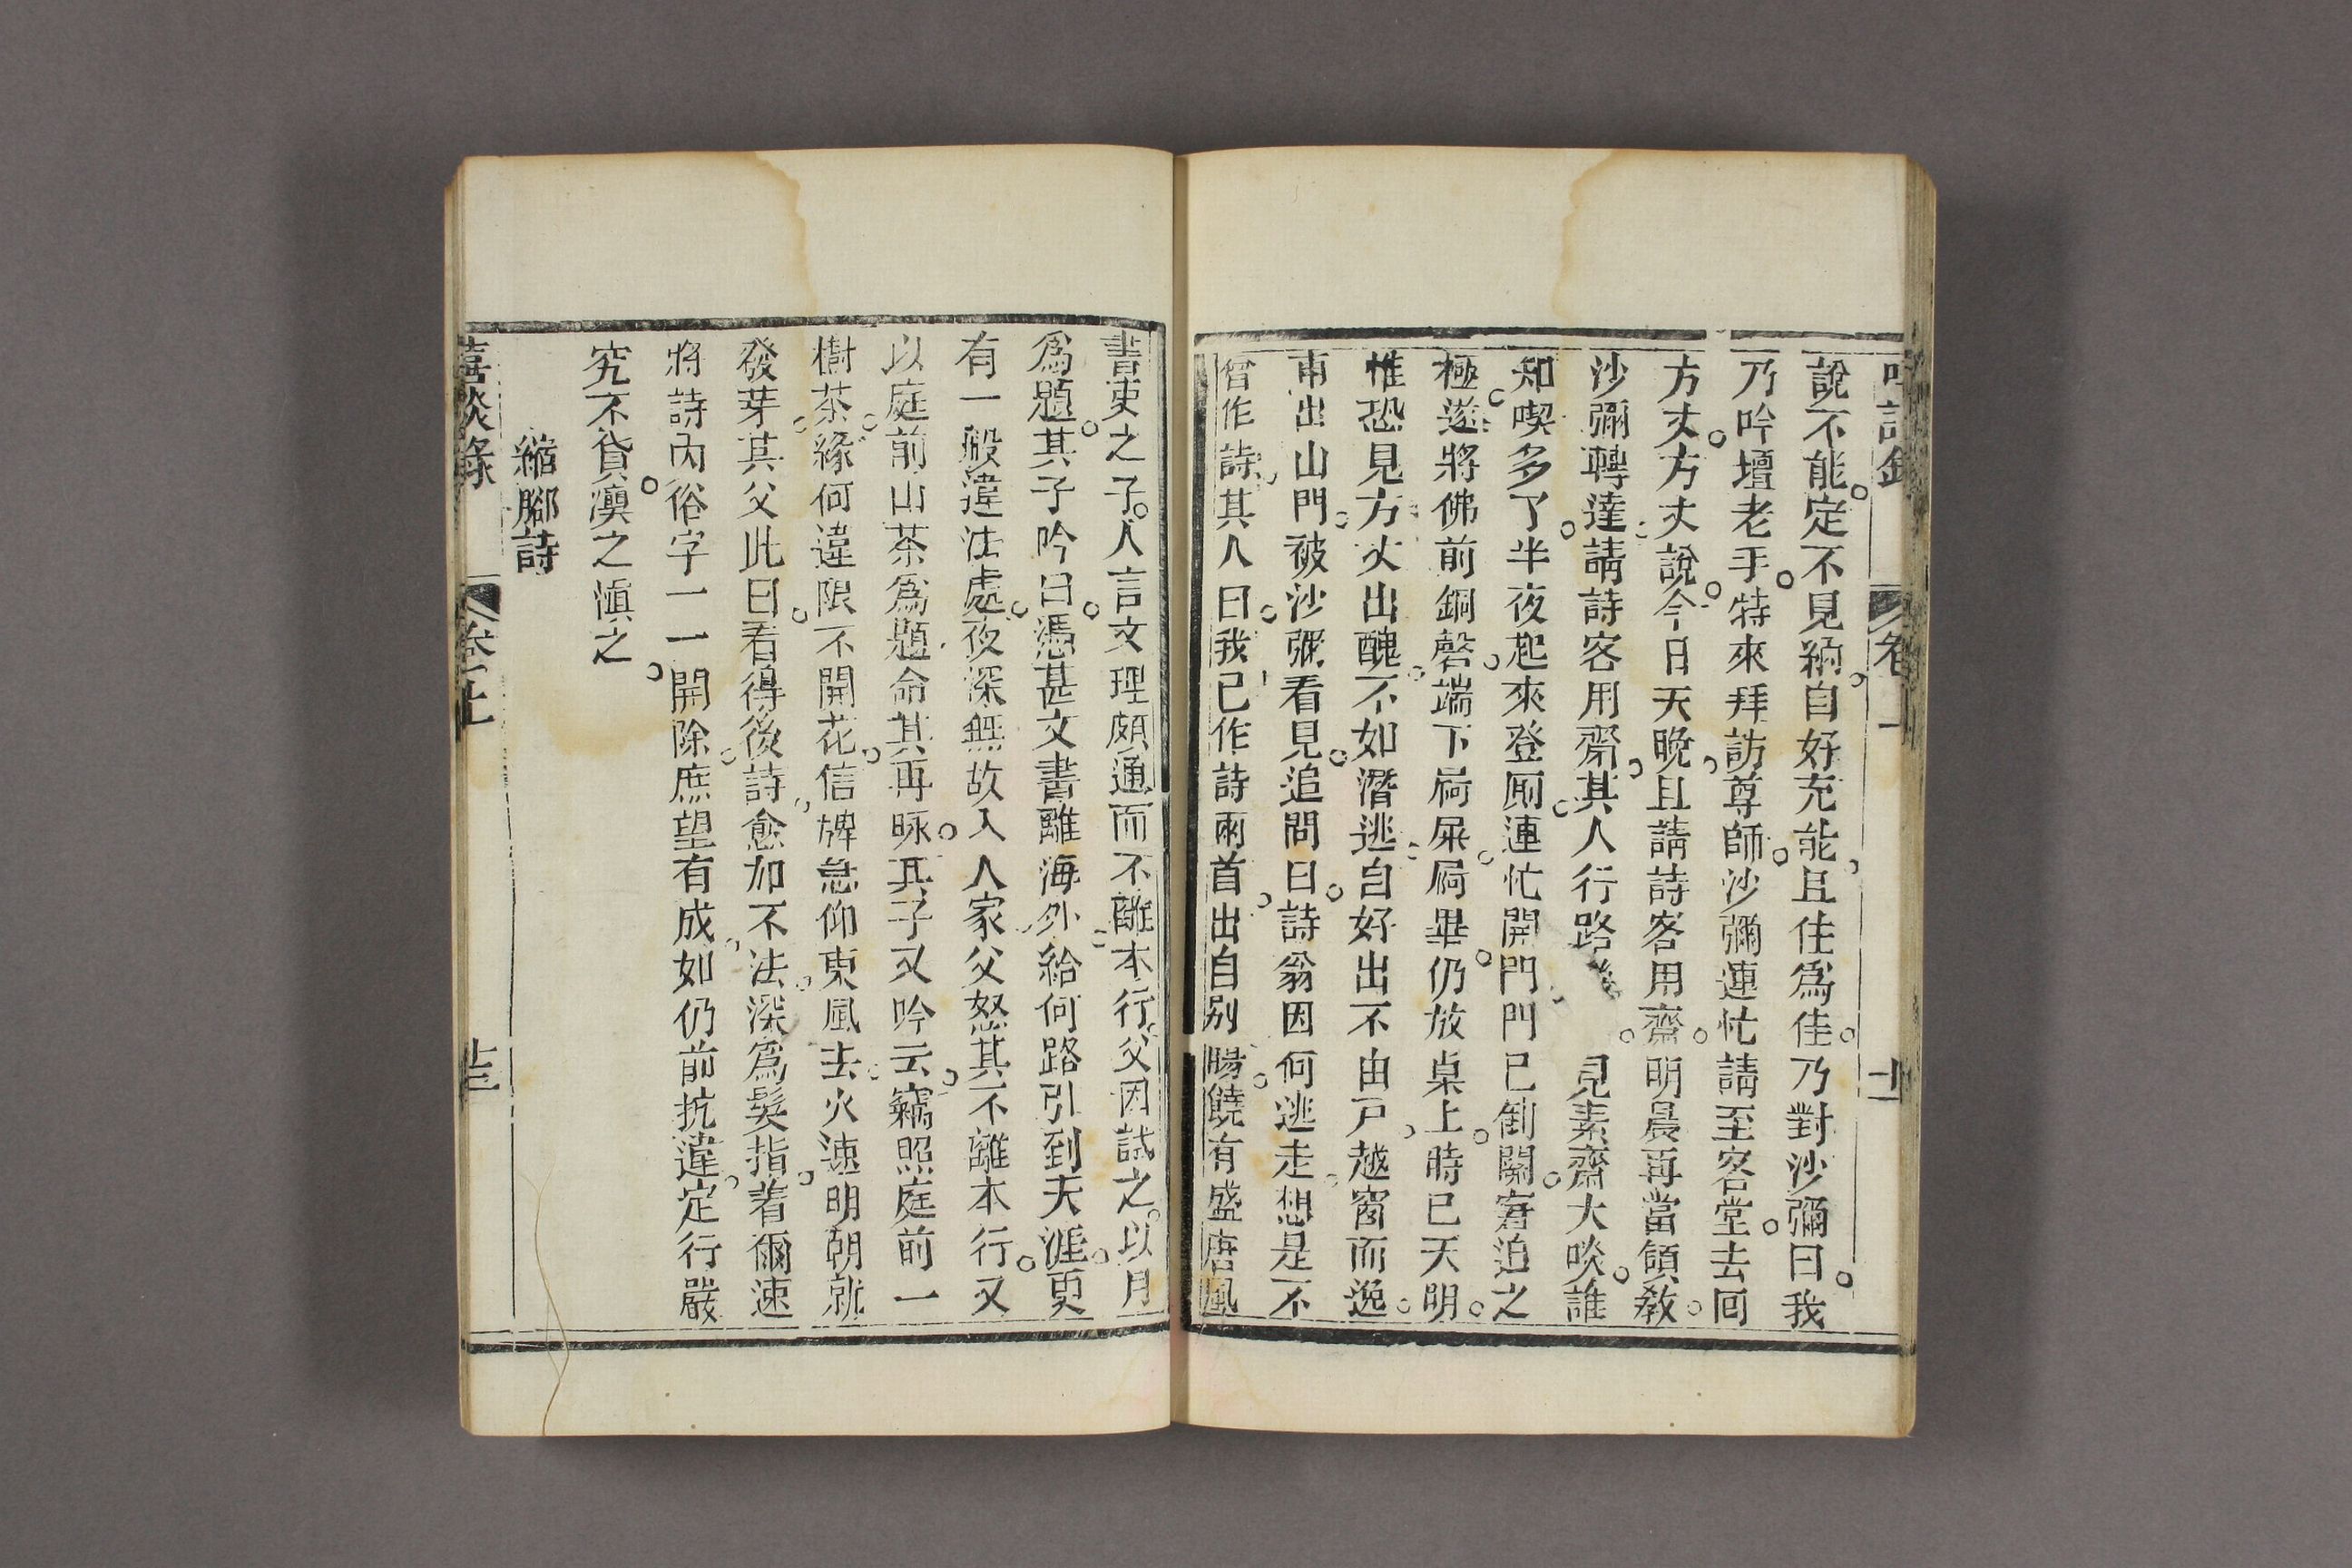 說不能定不見緔自好充能且住爲佳乃對沙彌曰我
乃吟壇老手特來拜訪尊師沙彌連忙請至客堂去囘
方丈方丈說今日天晚且請詩客用齋明晨再當領敎
沙彌轉達請詩客用齋其人行路 見素齋大啖誰
知喫多了半夜起來登厠連忙開門門已倒關窘迫之
極遂將佛前銅磬端下屙屎屙畢仍放桌上時已天明
惟恐見方丈出醜不如潛逃自好出不由戸越窗而逸
甫出山門被沙彌看見追問曰詩翁因何逃走想是不
僧作詩其人曰我已作詩兩首出自别腸饒有盛唐風
書吏之子人言文理頗通而不離本行父因試之以月
爲題其子吟曰憑甚文書離海外給何路引到天涯更
有一般違法處夜深無故入人家父怒其不離本行又
以庭前山茶爲題命其再咏其子又吟云竊照庭前一
樹茶緣何違限不開花信牌急仰東風去火速明朝就
發芽其父此曰看得後詩愈加不法深爲髮指着爾速
將詩內俗字一一開除庶望有成如仍前抗違定行嚴
究不貸凜之愼之
縮腳詩
喜談錄 卷上 十三